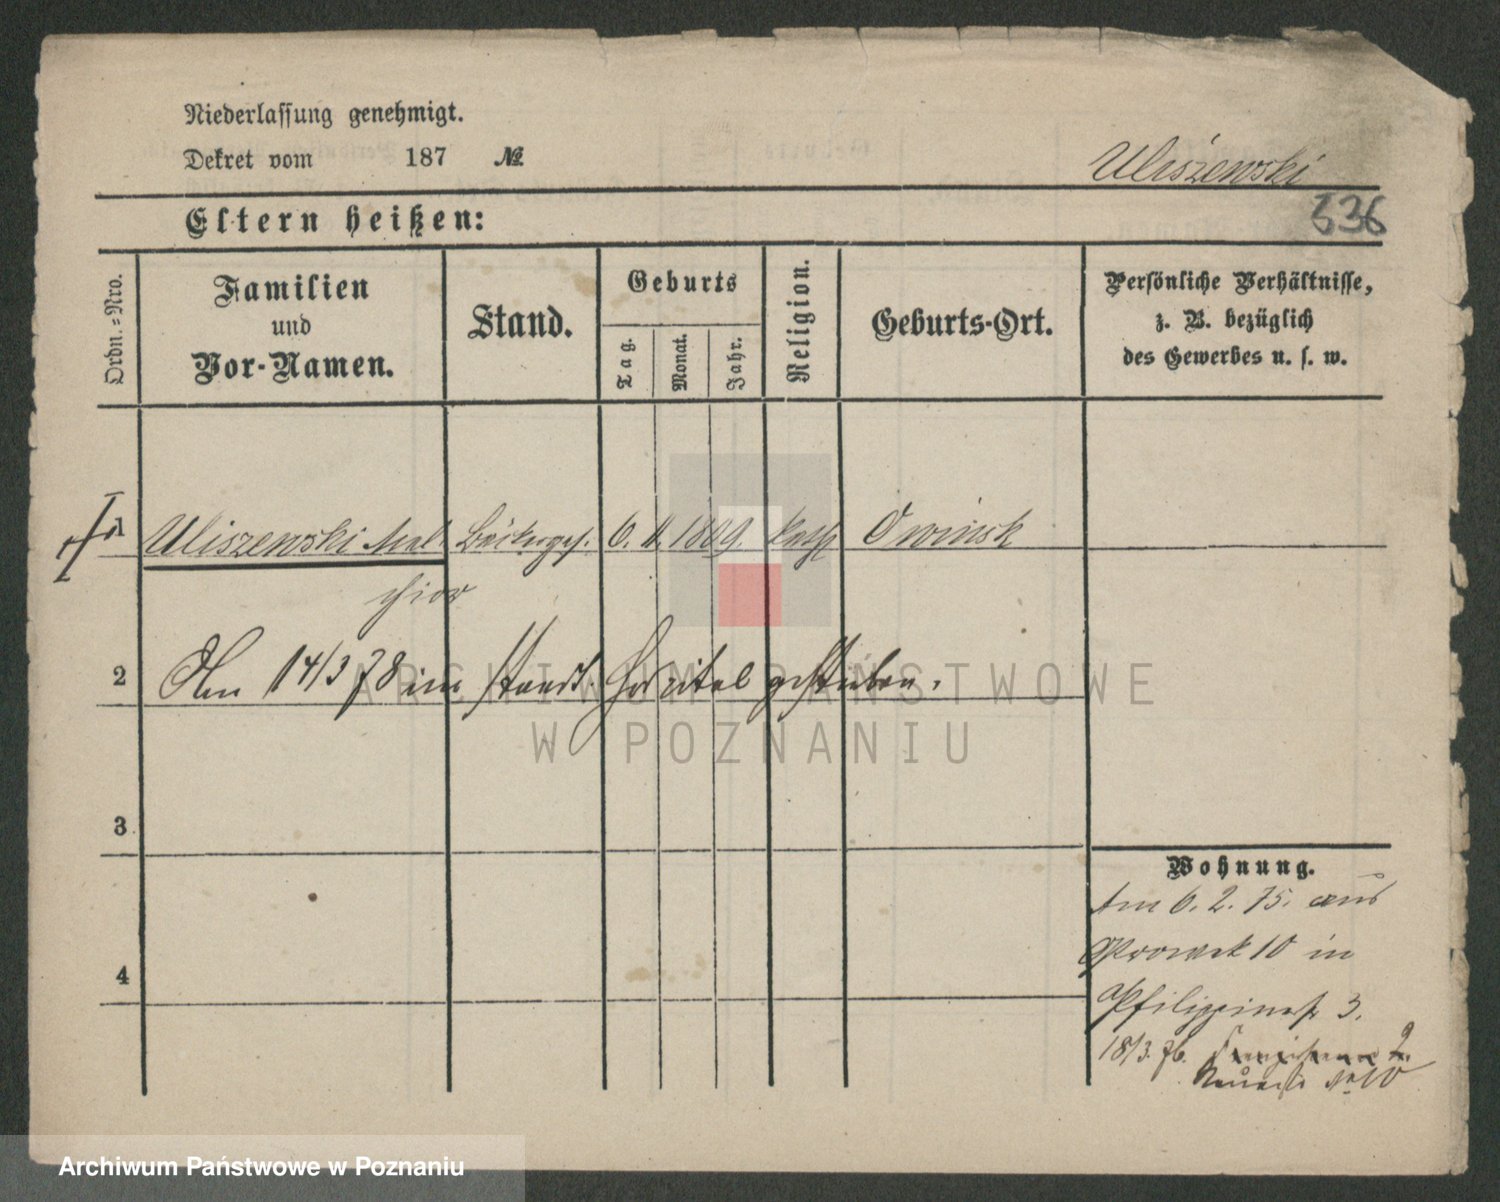 Niederlassung genehmigt.
Dekret vom 187 №
Uliszewski
636
Eltern heißen:
Ordn.-Nro.
Familien und Vor-Namen.
Stand.
Geburts
Tag.
Monat.
Jahr.
Religion.
Geburts-Ort.
Persönliche Verhältnisse,
z. B. bezüglich
des Gewerbes u. s. w.
1 Uliszewski Mel- Bäckerges. 6. 11. 1849. kath Owinsk
chior
2 Am 14/3 78 im staedt. Hospital gestorben.
3
4
Wohnung.
Am 6. 2. 75. aus
10 in
Philippinenstr 3.
18/3. 76. 2.
No 10
ARCHIWUM PAŃSTWOWE
W POZNANIU
Archiwum Państwowe w Poznaniu